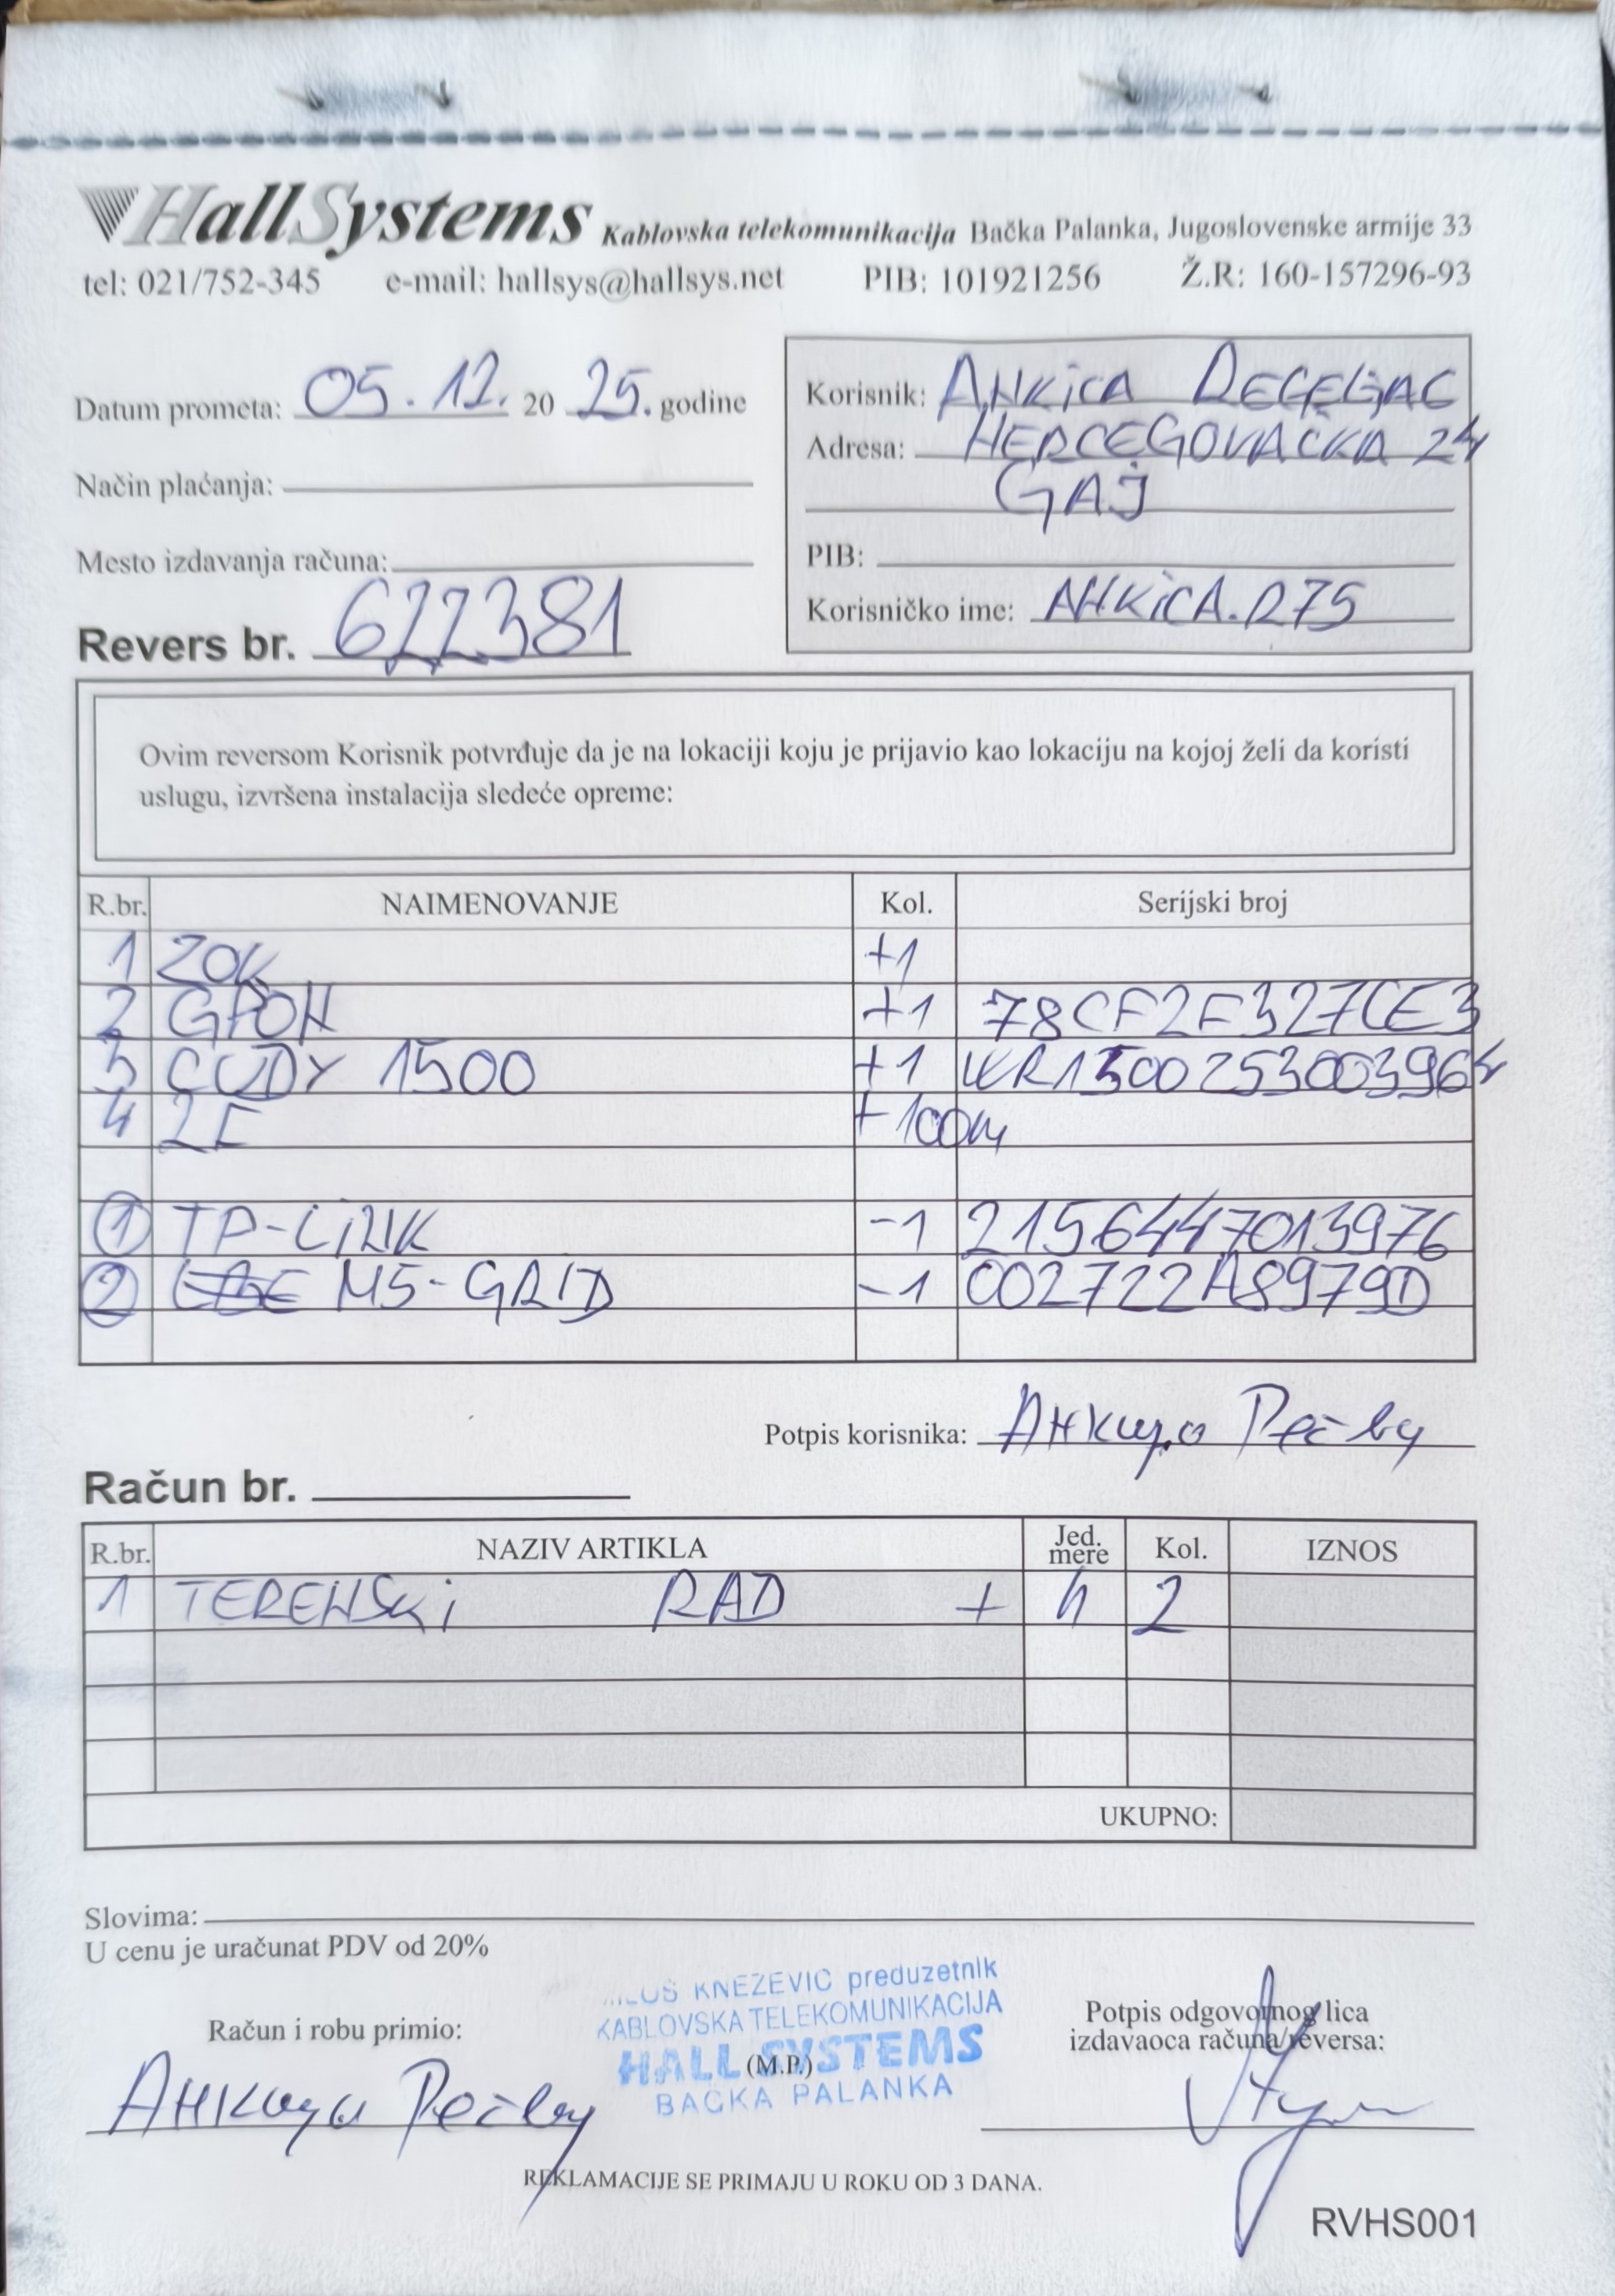 HallSystems Kablovska telekomunikacija Bačka Palanka, Jugoslovenske armije 33
tel: 021/752-345 e-mail: hallsys@hallsys.net PIB: 101921256 Ž.R: 160-157296-93
Datum prometa: 05.12. 20 25. godine
Način plaćanja:
Mesto izdavanja računa:
Revers br. 622381
Korisnik: ANKiCA
Adresa: HERCEGOVAČKA 24
GAJ
PIB:
Korisničko ime: ANKiCA.R75
Ovim reversom Korisnik potvrđuje da je na lokaciji koju je prijavio kao lokaciju na kojoj želi da koristi
uslugu, izvršena instalacija sledeće opreme:
R.br. NAIMENOVANJE Kol. Serijski broj
1 ZOK +1
2 GPON +1 78CF2F327CE3
3 CUDY 1500 +1 WR1500253003964
4 +100m
1 TP-LiNK -1 2156447013976
2 M5-GRID -1 002722A8979D
Potpis korisnika: Анкица
Račun br.
R.br. NAZIV ARTIKLA Jed. mere Kol. IZNOS
1 TERENSKi RAD + h 2
UKUPNO:
Slovima:
U cenu je uračunat PDV od 20%
KNEŽEVIĆ preduzetnik
KABLOVSKA TELEKOMUNIKACIJA
HALL SYSTEMS
BAČKA PALANKA
Račun i robu primio:
(M.P.)
Potpis odgovornog lica
izdavaoca računa/reversa:
Анкица
REKLAMACIJE SE PRIMAJU U ROKU OD 3 DANA.
RVHS001